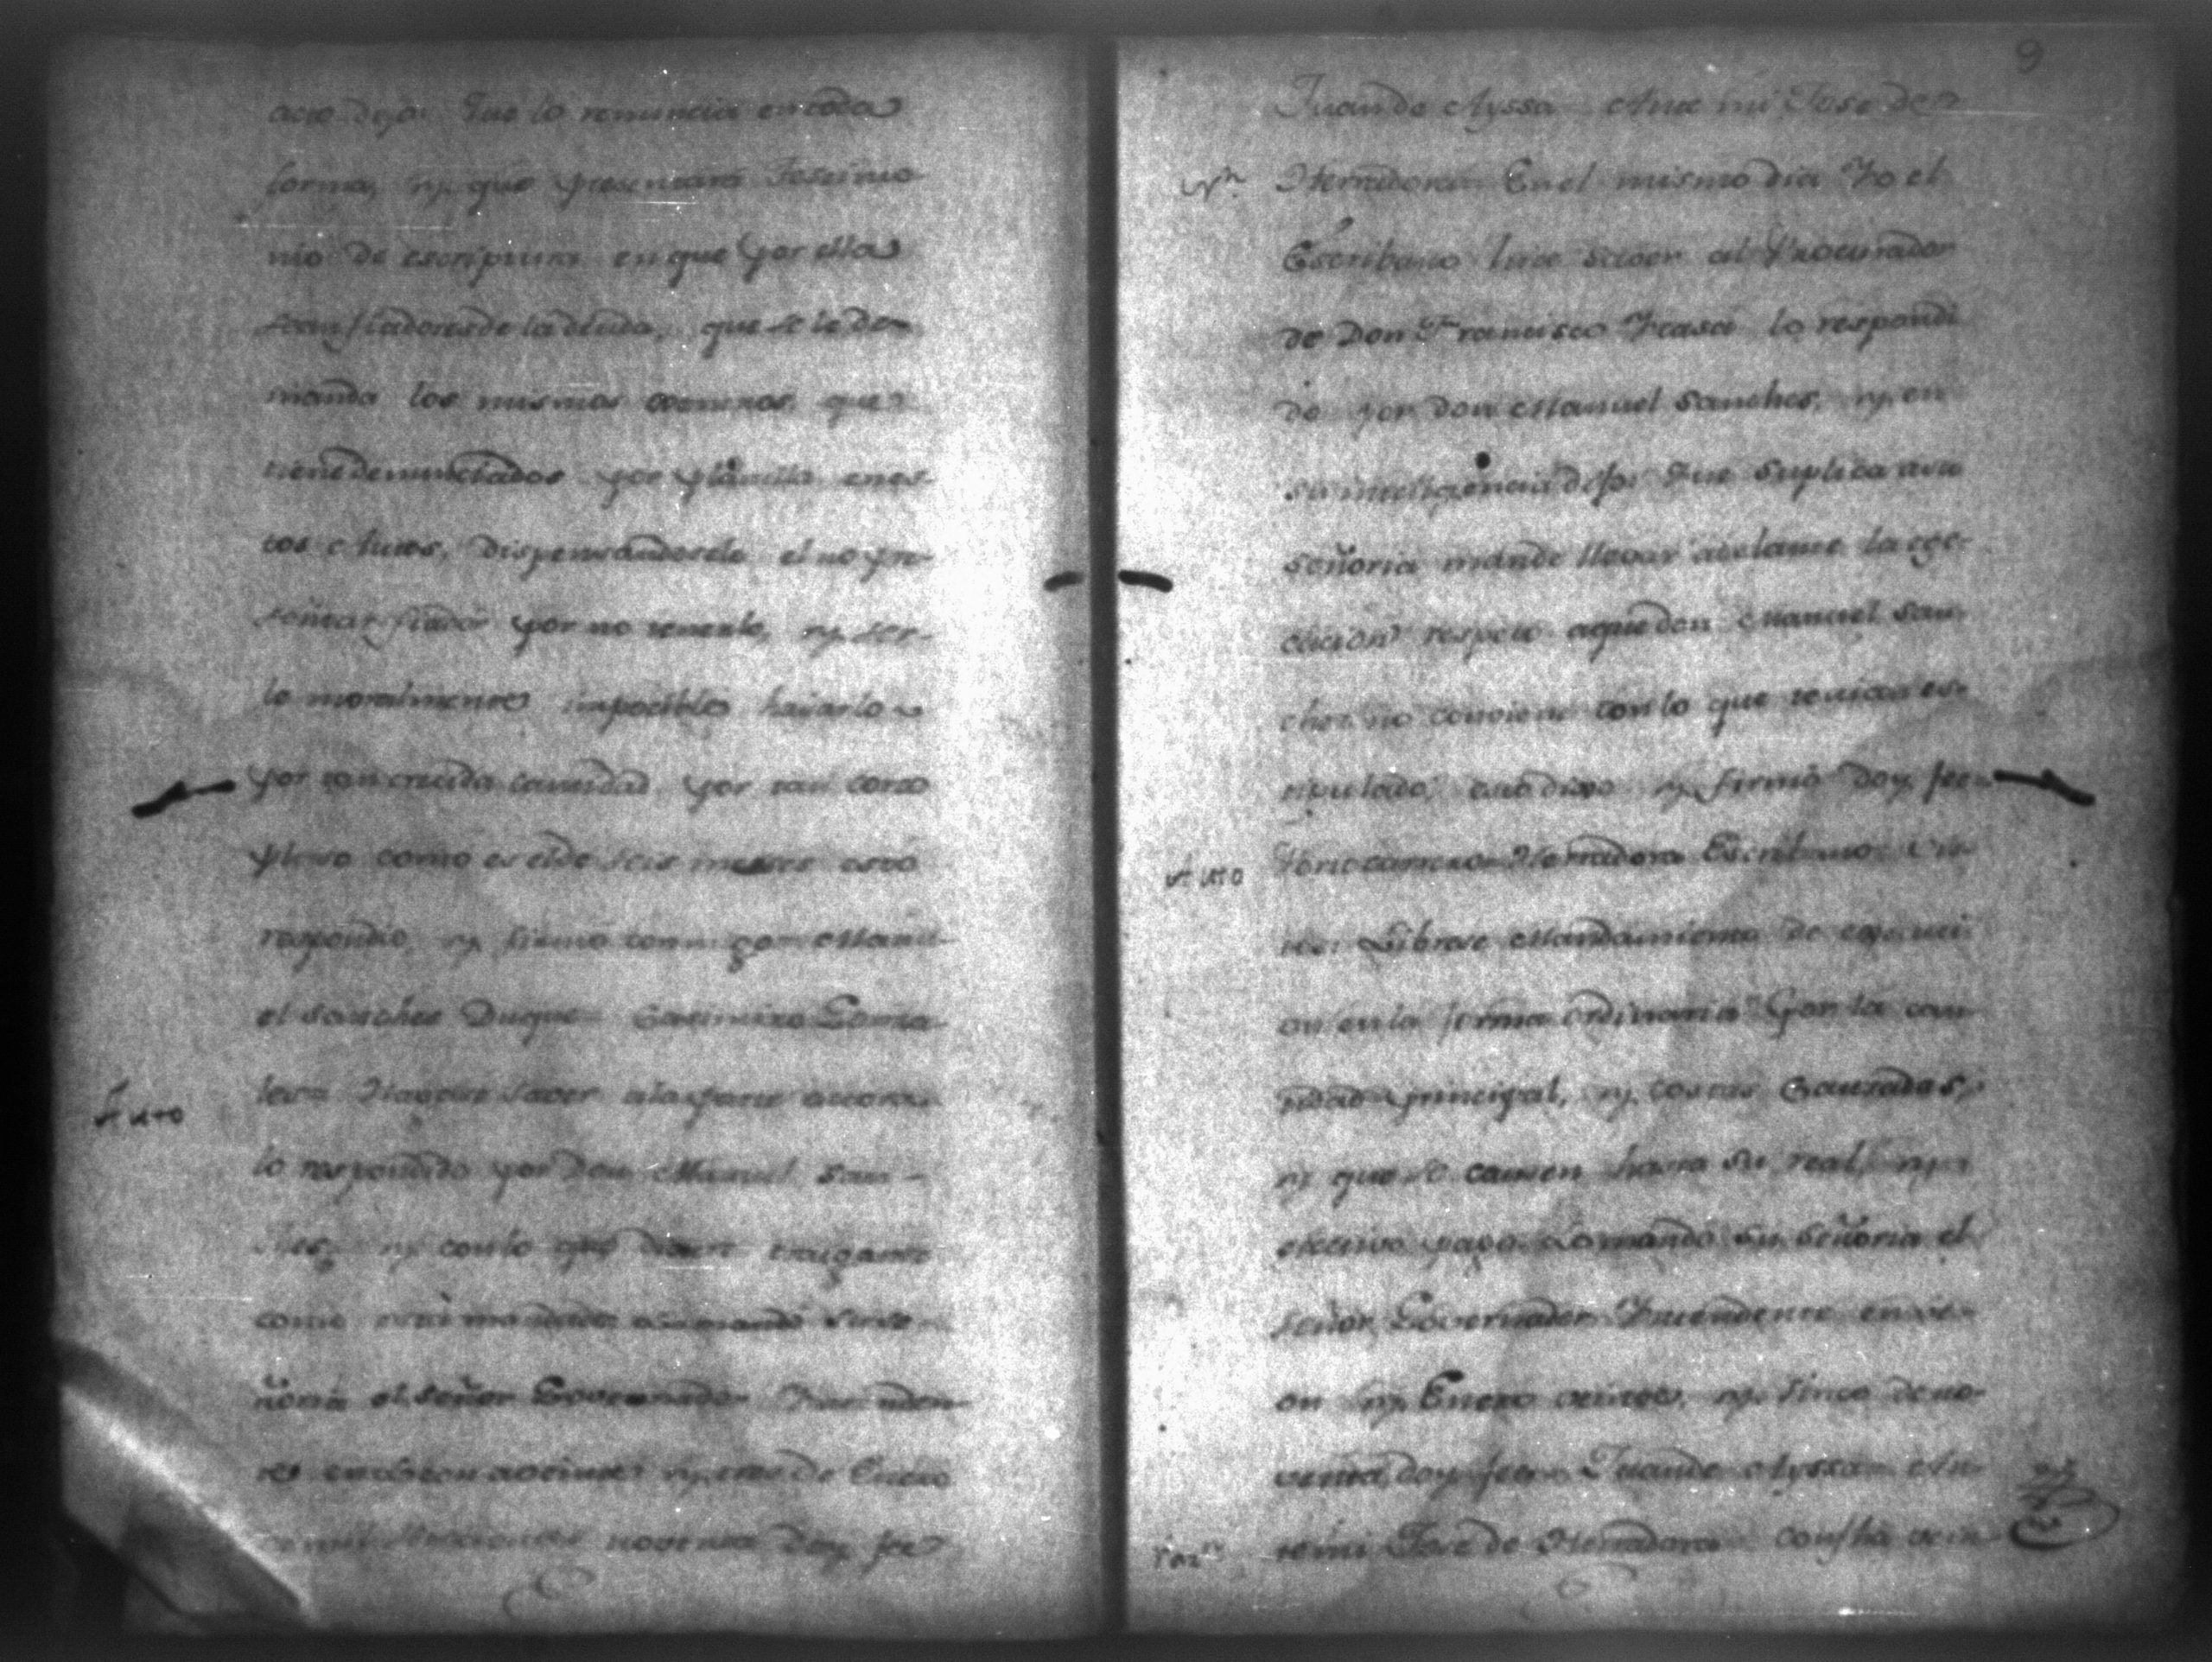 acto dijo: Que lo renuncia en toda
forma, y que presentará Testimo-
nio de escriptura en que por ella
sean fiadores de la deuda, que se le de-
manda los mismos que
tiene denunciados por planilla en es-
tos Autos, dispensandosele el no pre-
sentar fiador por no tenerlo, y ser-
le moralmente imposible hallarlo
por tan crecida cantidad por tan corto
plaso como es el de seis meses esto
respondio, y firmó conmigo = Manu-
el Sanches Duque = Casimiro Gomes
Auto
Hagase saver a la parte actora
lo respondido por Don Manuel San-
ches, y con lo que dixere traigance
como está mandado asi mandó Su Se-
ñoria el señor Governador Intenden-
te en Leon a veinte y tres de Enero
de mil setecientos noventa doy fee
9
Juan de Ayssa = Ante mi Jose de
Nn.
Herradora = En el mismo dia Yo el
Escribano hise saver al Procurador
de Don Francisco Ycasa lo respondi
do por don Manuel Sanches, y en
su inteligencia dijo: Que suplica a su
señoria mande llevar adelante la ege-
cucion respecto a que don Manuel San-
ches no conviene con lo que tenian es-
tipulado, esto dixo y firmó doy fee =
Auto
Herradora Escribano =
Librese Mandamiento de egecuci
on en la forma ordinaria por la can-
tidad principal, y costas Causadas,
y que se causen hasta su real, y
efectivo pago. Lo mandó Su Señoria el
señor Governador Yntendente en Le-
on y Enero veinte, y sinco de no-
venta, doy fee = Juan de Ayssa = An-
te mi Jose de Herradora = Con fha vein-